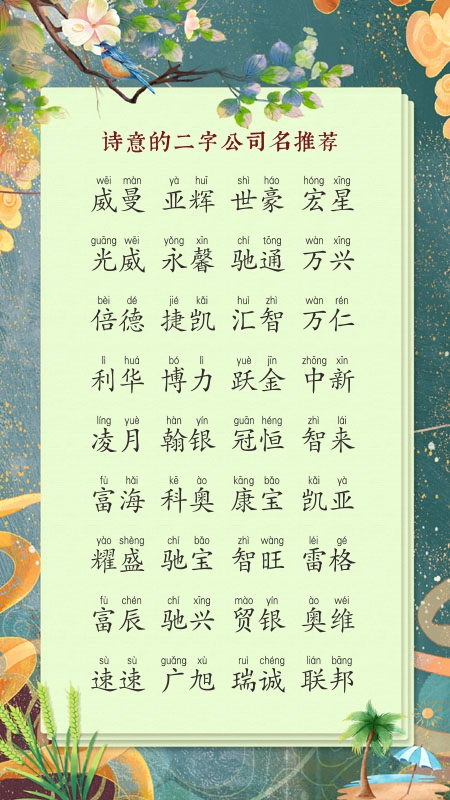 诗意的二字公司名推荐
wēi màn yà huī shì háo hóng xīng
威曼 亚辉 世豪 宏星
guāng wēi yǒng xīn chí tōng wàn xīng
光威 永馨 驰通 万兴
bèi dé jié kǎi huì zhì wàn rén
倍德 捷凯 汇智 万仁
lì huá bó lì yuè jīn zhōng xīn
利华 博力 跃金 中新
líng yuè hàn yín guān héng zhì lái
凌月 翰银 冠恒 智来
fù hǎi kē ào kāng bǎo kǎi yà
富海 科奥 康宝 凯亚
yào shèng chí bǎo zhì wàng léi gé
耀盛 驰宝 智旺 雷格
fù chén chí xīng mào yín ào wéi
富辰 驰兴 贸银 奥维
sù sù guǎng xù ruì chéng lián bāng
速速 广旭 瑞诚 联邦